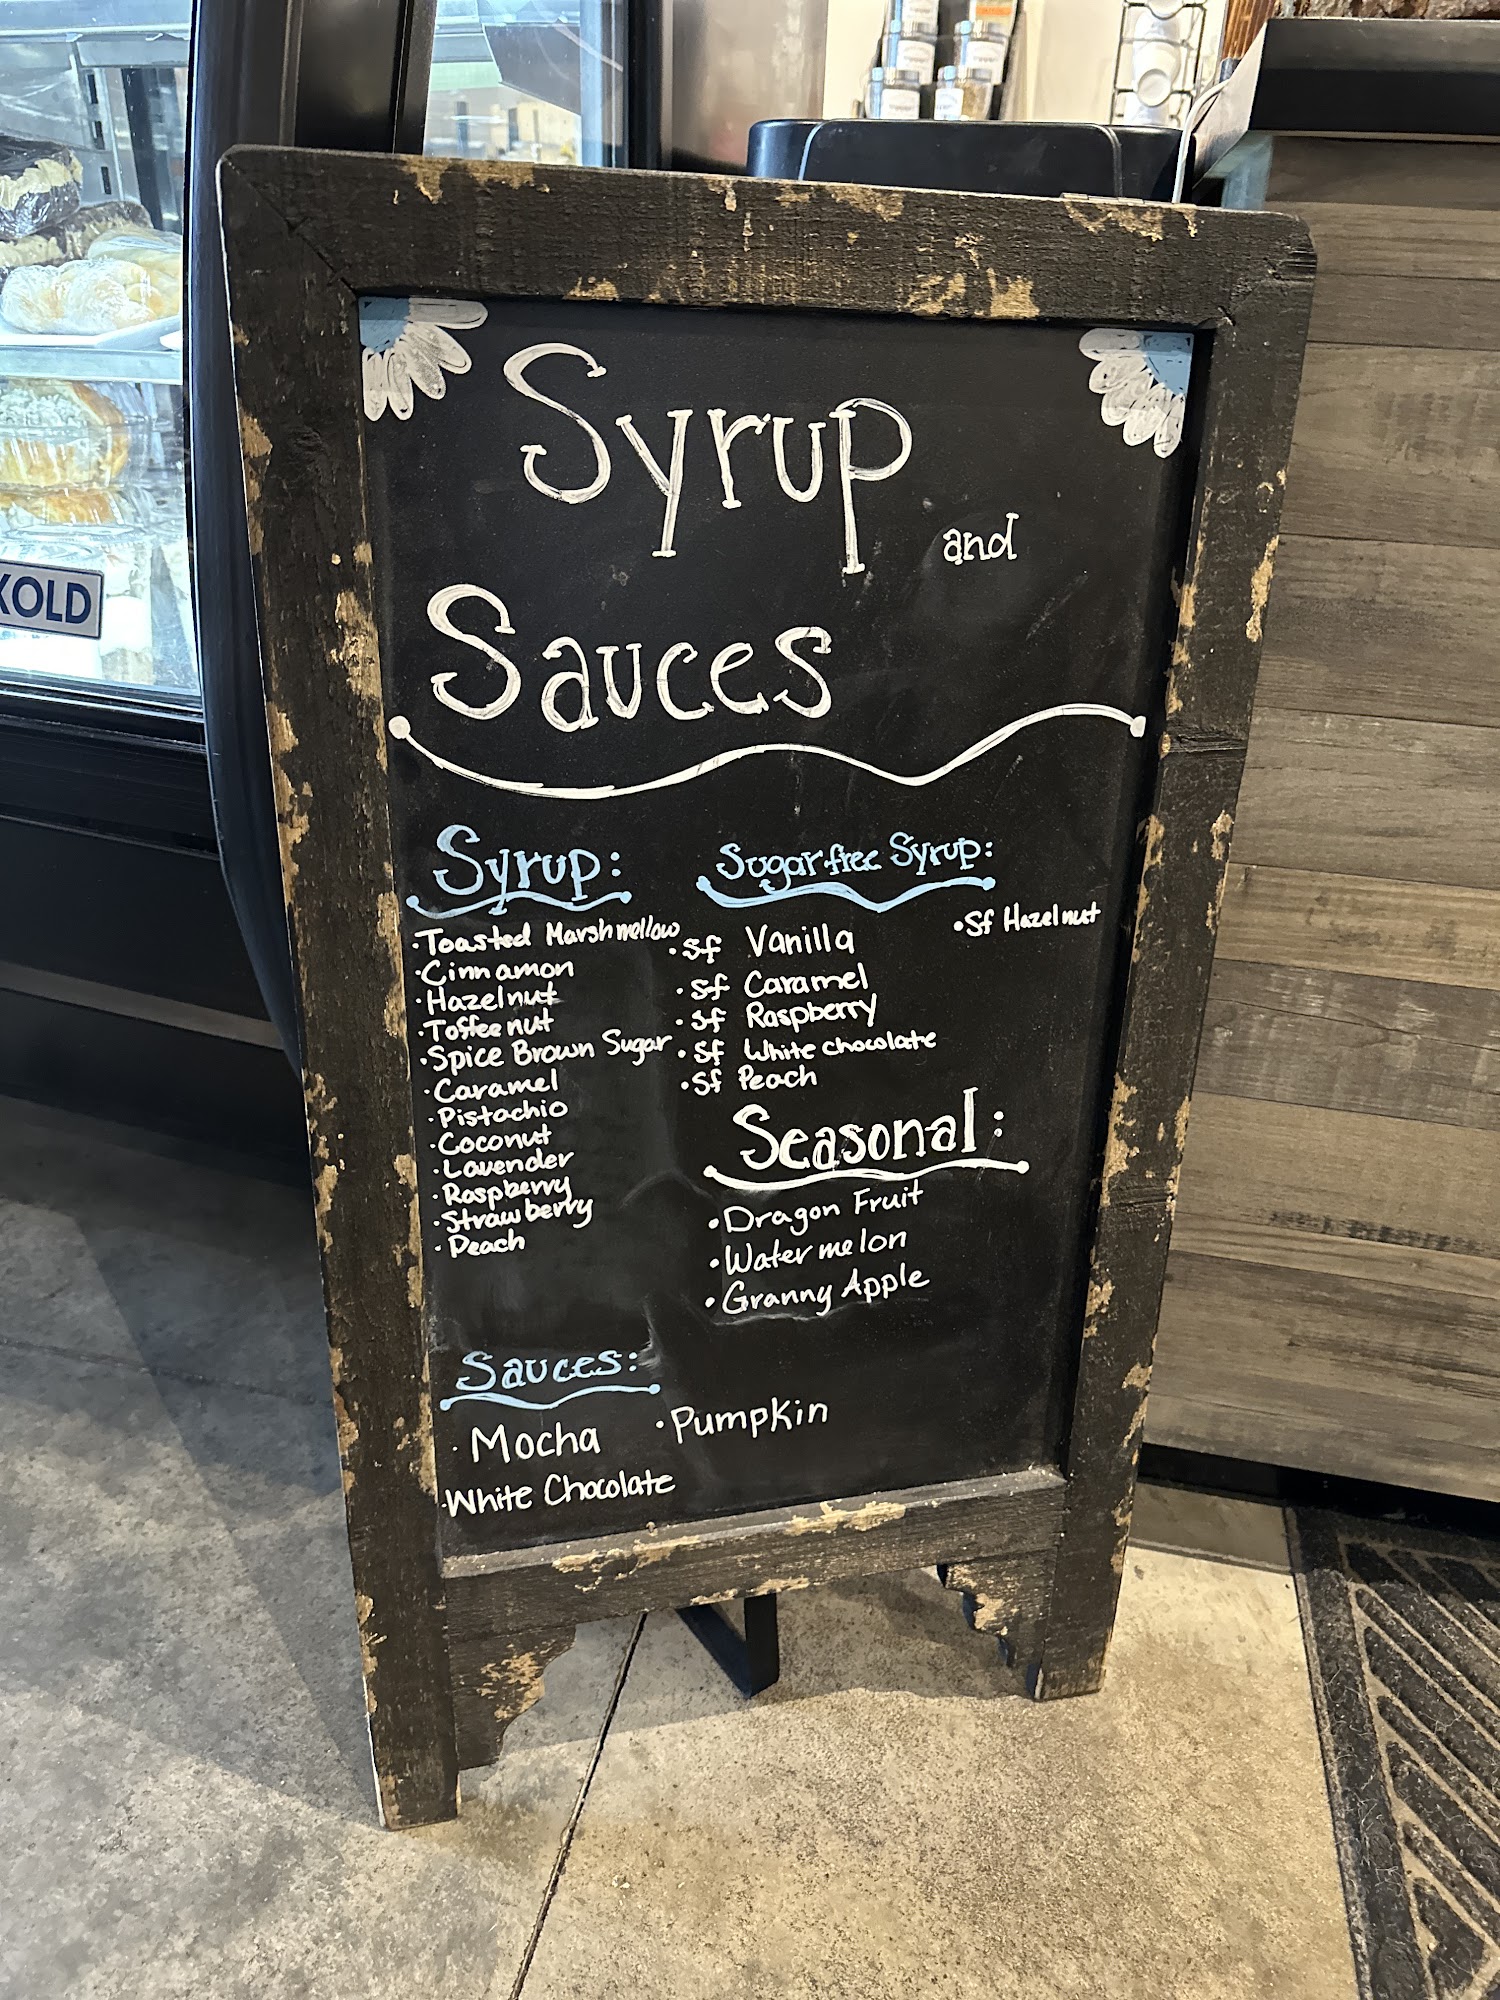 KOLD
Syrup
and
Sauces
Syrup:
·Toasted Marshmellow
·Cinnamon
·Hazelnut
·Toffee nut
·Spice Brown Sugar
·Caramel
·Pistachio
·Coconut
·Lavender
·Raspberry
·Strawberry
·Peach
Sugarfree Syrup:
·Sf Vanilla
·Sf Caramel
·Sf Raspberry
·Sf White chocolate
·Sf Peach
·Sf Hazelnut
Seasonal:
·Dragon Fruit
·Watermelon
·Granny Apple
Sauces:
·Mocha
·Pumpkin
·White Chocolate